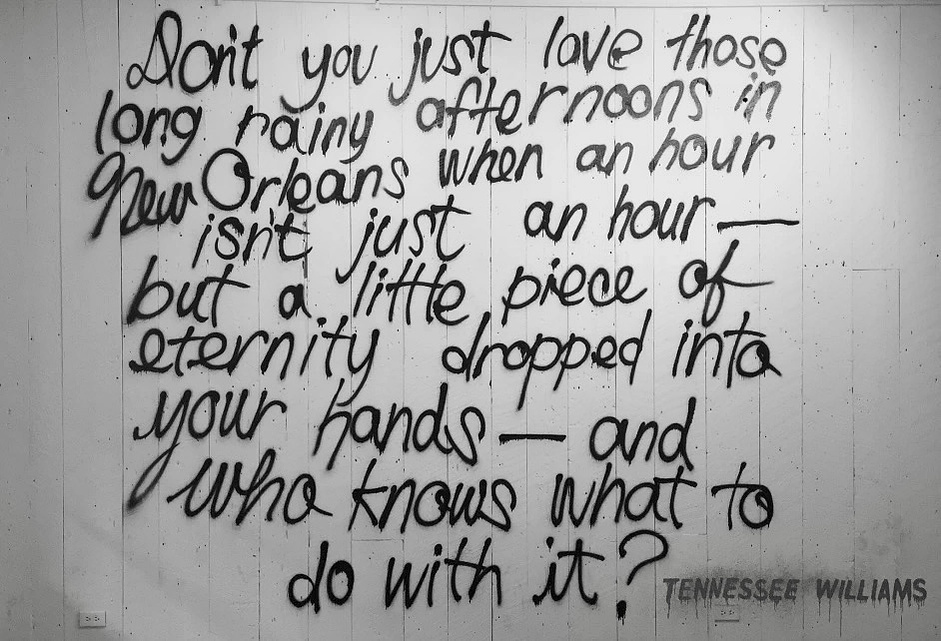 Don't you just love those
long rainy afternoons in
New Orleans when an hour
isn't just an hour—
but a little piece of
eternity dropped into
your hands — and
who knows what to
do with it?
TENNESSEE WILLIAMS